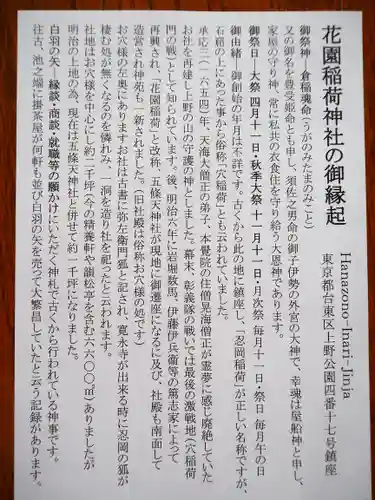 花園稲荷神社の御縁起
Hanazono-Inari-Jinja
東京都台東区上野公園四番十七号鎮座
御祭神―倉稲魂命(うがのみたまのみこと)
又の御名を豊受姫命とも申し、須佐之男命の御子伊勢の外宮の大神で、幸魂は屋船神と申し、
家屋の守り神、常に私共の衣食住を守り給う大恩神であります。
御祭日―大祭 四月十一日・秋季大祭 十一月十一日・月次祭 毎月十一日・祭日 毎月午の日
御由緒―御創始の年月は不詳です。古くから此の地に鎮座し、「忍岡稲荷」が正しい名称ですが、
石窟の上にあった事から俗称、穴稲荷」とも云われていました。
承応三(一六五四)年、天海大僧正の弟子、本覚院の住僧晃海僧正が霊夢に感じ廃絶していた
お社を再建し上野の山の守護の神としました。幕末、彰義隊の戦いでは最後の激戦地(穴稲荷
門の戦)として知られています。後、明治六年に岩堀数馬、伊藤伊兵衛等の篤志家によって
再興され、「花園稲荷」と改称、五條天神社が現地に御遷座になるに及び、社殿も南面して
造営され神苑も一新されました。(旧社殿は俗称お穴様の処です)
お穴様の左奥にありますお社は古書に弥左衛門狐と記され、寛永寺が出来る時に忍岡の狐が
棲む処が無くなるのを憐れみ、一洞を造り社を祀ったと云われます。
社地はお穴様を中心にし約二千坪(今の精養軒や韻松亭を含む六六〇〇㎡)ありましたが
明治の上地の為、現在は五條天神社と併せて約一千坪になりました。
白羽の矢 縁談・商談・就職等の願かけにいただく神札で古くから行われている神事です。
往古、池之端に掛茶屋が何軒も並び白羽の矢を売って大繁昌していたと云う記録があります。